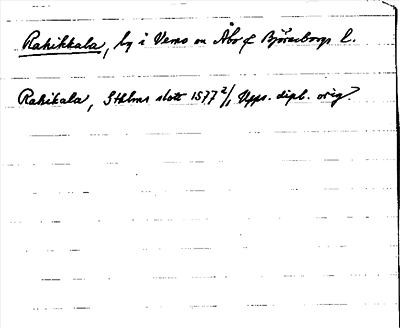 Rahikkala, by i Vemo sn Åbo o Björneborgs l.
Rahikala, Sthlms slott 1577 2/1 Upps. dipl. orig.